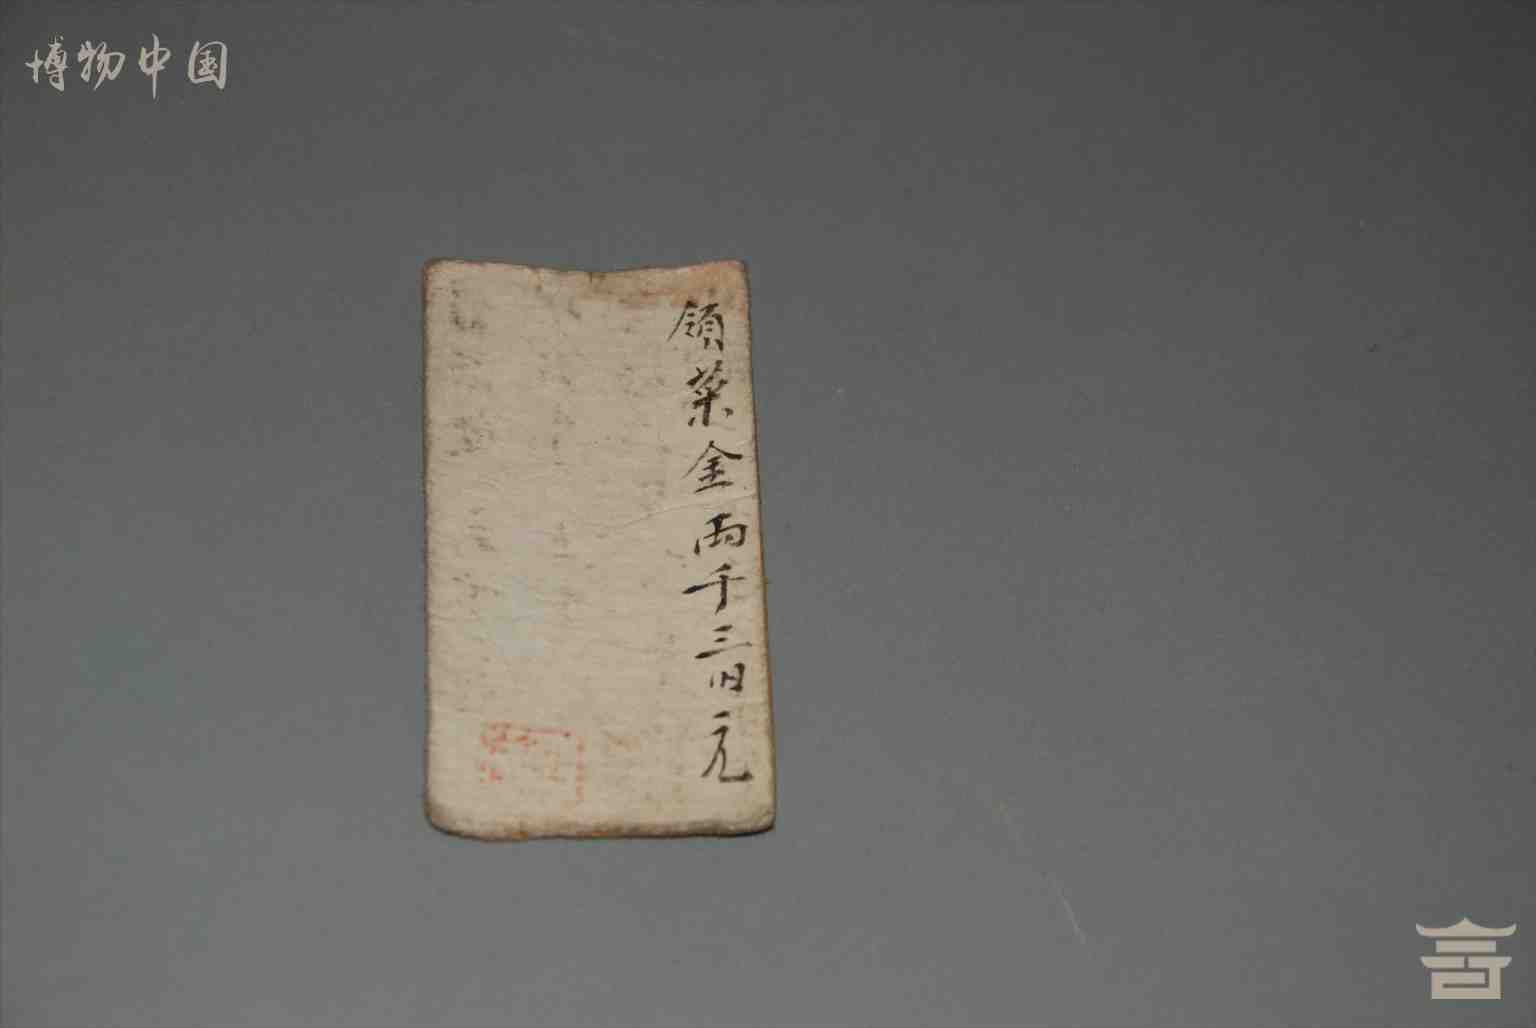 博物中国
領菜金両千三旧元